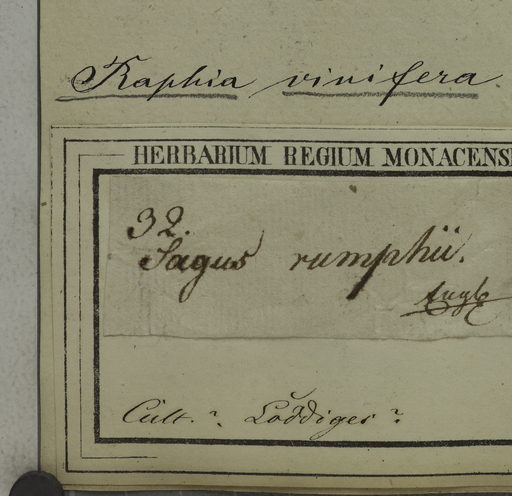 Raphia vinifera.
HERBARIUM REGIUM MONACENS
32.
Sagus rumphii.
Cult.? Loddiges?